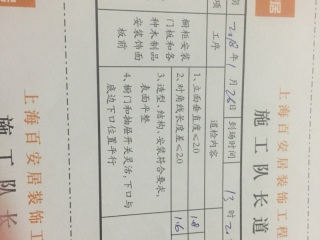 居
上海百安居装饰工程
施工队长道
期 2018年1月26日 到场时间 13时2
项 工序 巡检内容
橱柜安装
门板和各
种木制品
安装饰面
板前
1、立面垂直度≤2.0 1.8
2、对角线长度差≤2.0 1.6
3、造型、结构、安装符合要求，
表面平整
4、橱门和抽屉开关灵活，下口与
底边下口位置平行
上海百安居装饰工
施工队长